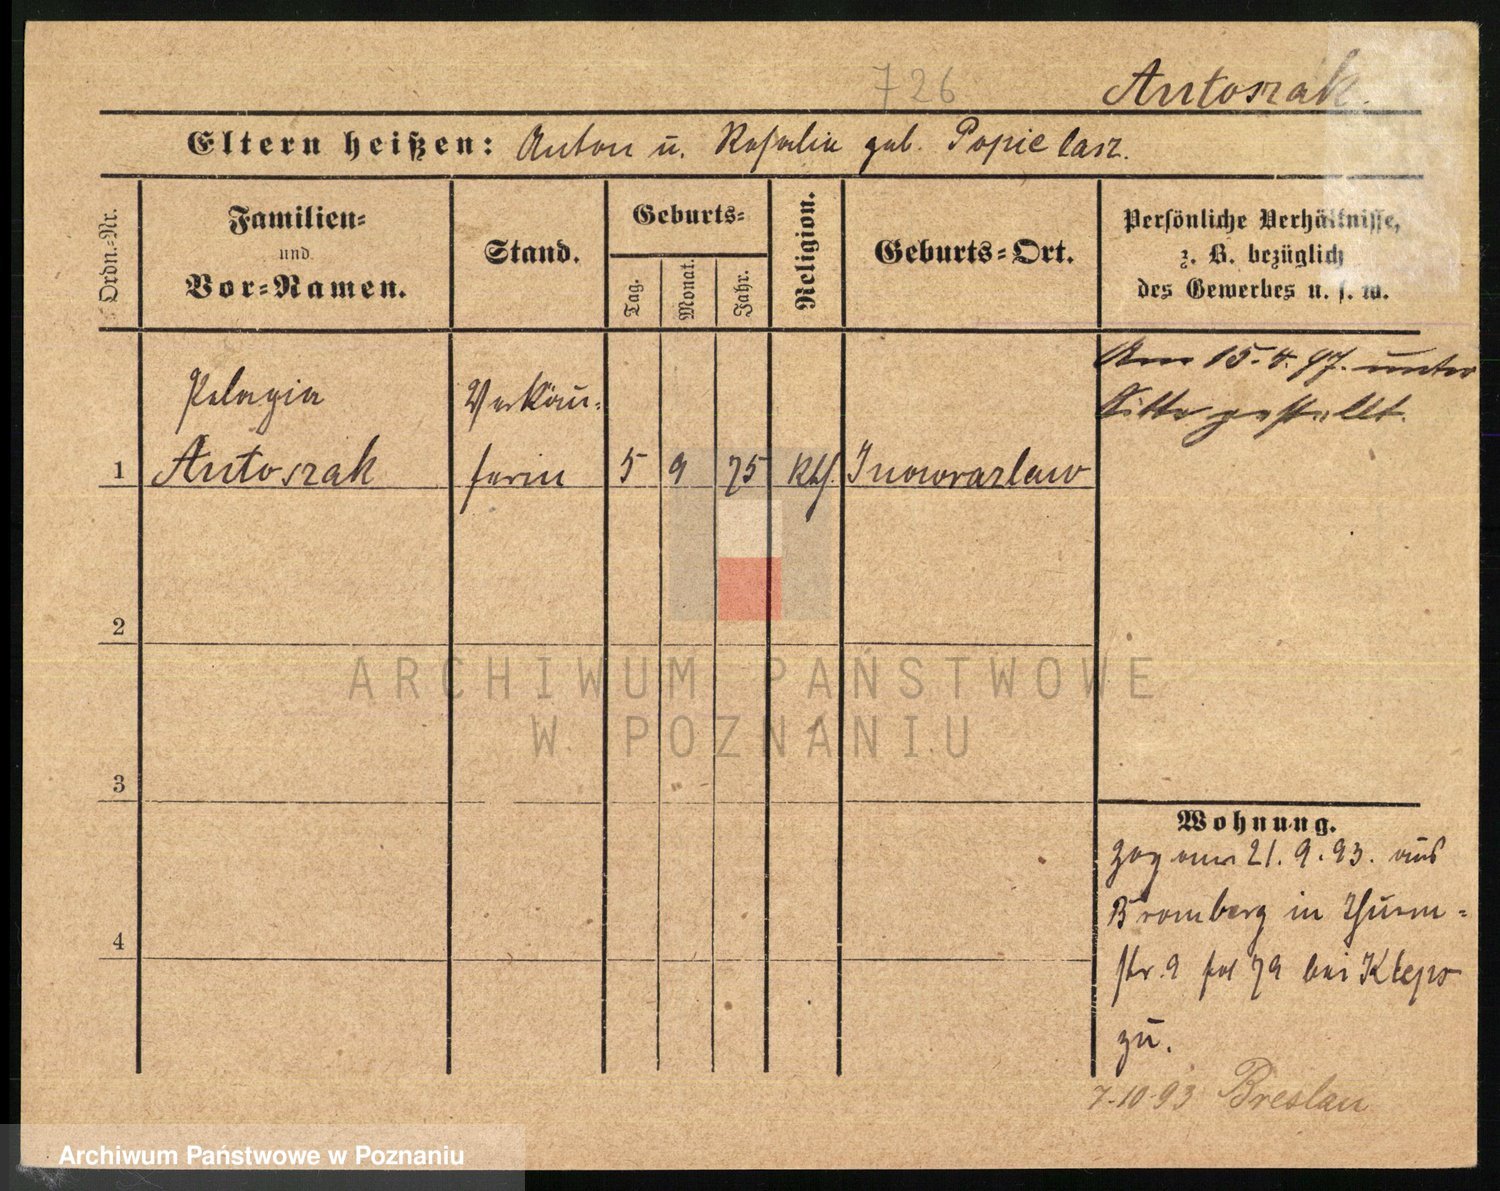 726
Antoszak.
Eltern heißen: Anton u. Rosalia geb. Popielasz.
Ordn.-Nr.
Familien-
und
Vor-Namen.
Stand.
Geburts-
Tag.
Monat.
Jahr.
Religion.
Geburts-Ort.
Persönliche Verhältnisse,
z. B. bezüglich
des Gewerbes u. s. w.
Pelagia
Verkäu-
Am 15.4.97. unter
Sitte gestellt.
1 Antoszak ferin 5 9 75 kth. Inowrazlaw
2
3
4
Wohnung.
Zog am 21.9.93. aus
Bromberg in Thurm-
str. 9 fol 79 bei Kleps
zu.
7-10-93 Breslau
ARCHIWUM PAŃSTWOWE
W POZNANIU
Archiwum Państwowe w Poznaniu